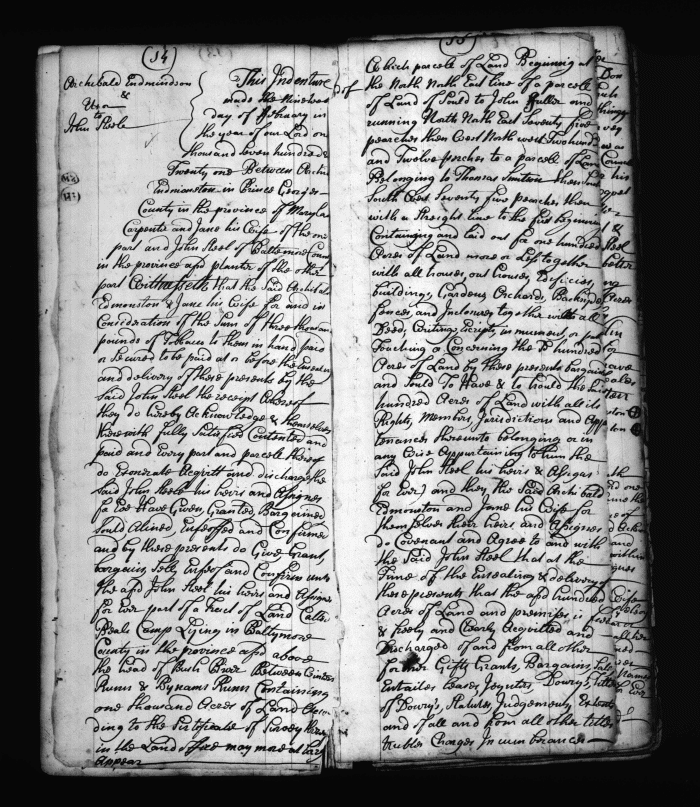 (54)
Archibald Edmundson
&
Uxor
to
John Steele
This Indenture
made the Nineteen
day of February in
the year of our Lord on
thousand seven hundred &
Twenty one Between Archi
Edmonston in Prince Georges
County in the province of Maryla
Carpenter and Jane his Wife of the one
part and John Steel of Baltemore Coun
in the province afsd planter of the other
part Withasseth that the Said Archibald
Edmonston & Jane his Wife for and in
Consideration of the Sum of three thousan
pounds of Tobacco to them in hand paid
or Secured to be paid at or before the Ensealin
and delivery of these presents by the
Said John Steel the receipt whereof
they do hereby Acknowledge & themselves
therewith fully Satisfied Contented and
paid and every part and parcele thereof
do Exonerate Acquitt and discharge the
Said John Steel his heirs and Assignes
for Ever Have Given, Granted, Bargained
Sould Alined, Enfeoffed and Confirmed
and by these presents do Give Grant,
bargain, Sell, Enfeof and Confirm unto
the afsd John Steel his heirs and Assigns
for Ever part of a Tract of Land Called
Beals Camp Lying in Baltymore
County in the province afsd above
the head of Bush River Between
Runn & Bynams Runn Containing
one thousand Acres of Land Accor
ding to the Sertificate of Survey thereof
in the Land office may more at larg
Appear
(55)
Which parcele of Land Beginning at
the North North East line of a parcele
of Land Sould to John Fuller and
running North North East Seventy five
pearches then West North west Two hund
and Twelve perches to a parcele of Land
Belonging to Thomas thence
South West Seventy five pearches then
with a Streight Line to the first beginning
Containing and laid out for one hundred
Acres of Land more or Less together
with all houses, out houses, Edificies
buildings, Gardens Orchards, Backsides
fences and Inclosures together with all
Deed, Writings, Escripts, in muniment, or
Touching or Concerning the sd hundred
Acres of Land by these presents bargained
and Sould To Have & to hould the
hundred Acres of Land with all its
Rights, Members, Jurisdictions and App
tenances thereunto belonging or in
any Wise Appurtaining to him the
Said John Steel his heirs & Assigns
for Ever and they the Said Archibald
Edmonston and Jane his Wife for
themselves their heirs and Assignes
do Covenant and Agree to and with
the Said John Steel that at the
Time of the Ensealing & delivery of
these presents that the afsd hundred
Acres of Land and premises is
& freely and Clearly Acquitted and
Discharged of and from all other
former Gifts, Grants, Bargains, Sales
Entailes Leases, Joyntes, Dowry's, Titles
of Dowry's, Statutes, Judgements, Extents
and of all and from all other titles
trubles Charges Incumbrances